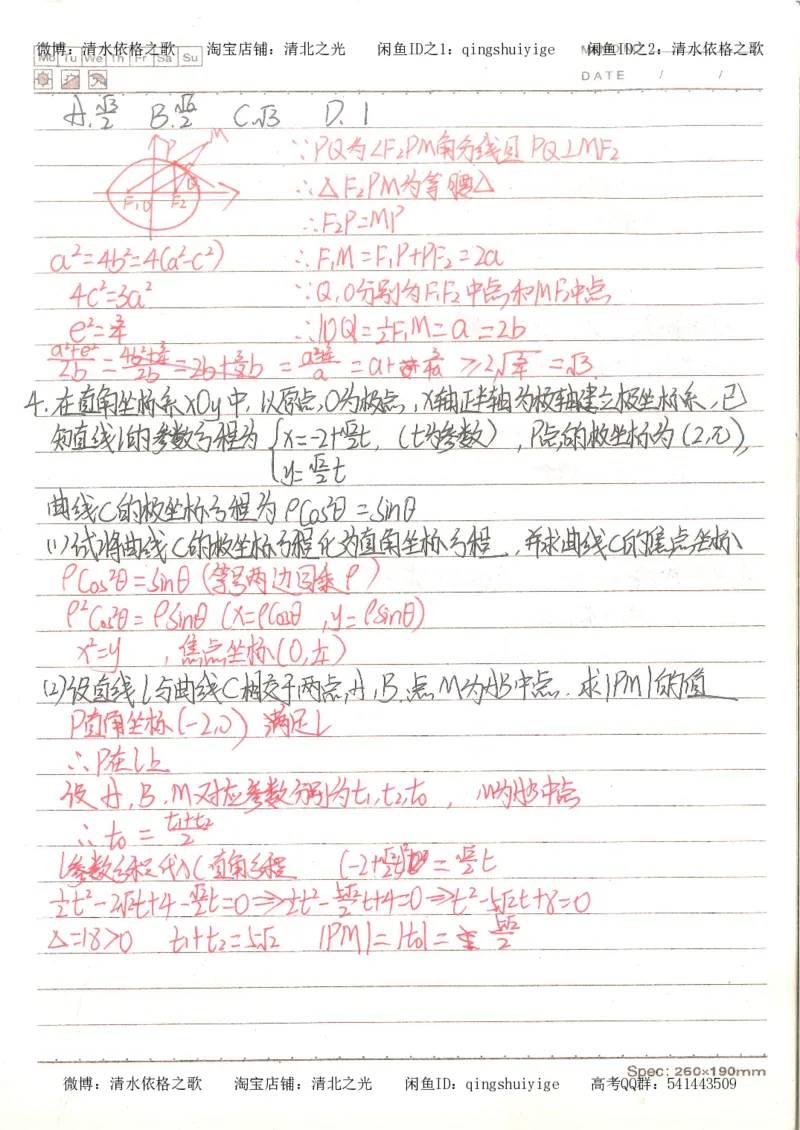 微博：清水依格之歌 淘宝店铺：清北之光 闲鱼ID之1：qingshuiyige 闲鱼ID之2：清水依格之歌
Mo Tu We Th Fr Sa Su
DATE / /
A.√3/2 B.√6/2 C.√3 D.1
P M Q F₁ O F₂
∵PQ为∠F₂PM角分线且PQ⊥MF₂
∴△F₂PM为等腰△
∴F₂P=MP
a²=4b²=4(a²-c²) ∴F₁M=F₁P+PF₂=2a
4c²=3a² ∵Q,O分别为F₁F₂中点和MF₂中点
e²=3/4 ∴|OQ|=½F₁M=a=2b
(a²+e²)/2b = = =a+ ≥2√ =√3
4.在直角坐标系xOy中,以原点O为极点,x轴正半轴为极轴建立极坐标系,已
知直线l的参数方程为{x=-2+√2/2t,(t为参数),P点的极坐标为(2,π),
y=√2/2t
曲线C的极坐标方程为ρcos²θ=sinθ
(1)试将曲线C的极坐标方程化为直角坐标方程,并求曲线C的焦点坐标
ρcos²θ=sinθ(等号两边同乘ρ)
ρ²cos²θ=ρsinθ(x=ρcosθ,y=ρsinθ)
x²=y ,焦点坐标(0,¼)
(2)设直线l与曲线C相交于两点,A,B.点M为AB中点.求|PM|的值
P直角坐标(-2,0)满足l
∴P在l上
设A,B,M对应参数分别为t₁,t₂,t₀,M为AB中点
∴t₀=(t₁+t₂)/2
l参数方程代入C直角方程 (-2+√2/2t)²=√2/2t
½t²-2√2t+4-√2/2t=0⇒½t²-5√2/2t+4=0⇒t²-5√2t+8=0
△=18>0 t₁+t₂=5√2 |PM|=|t₀|=5√2/2
Spec: 260×190mm
微博：清水依格之歌 淘宝店铺：清北之光 闲鱼ID：qingshuiyige 高考QQ群：541443509